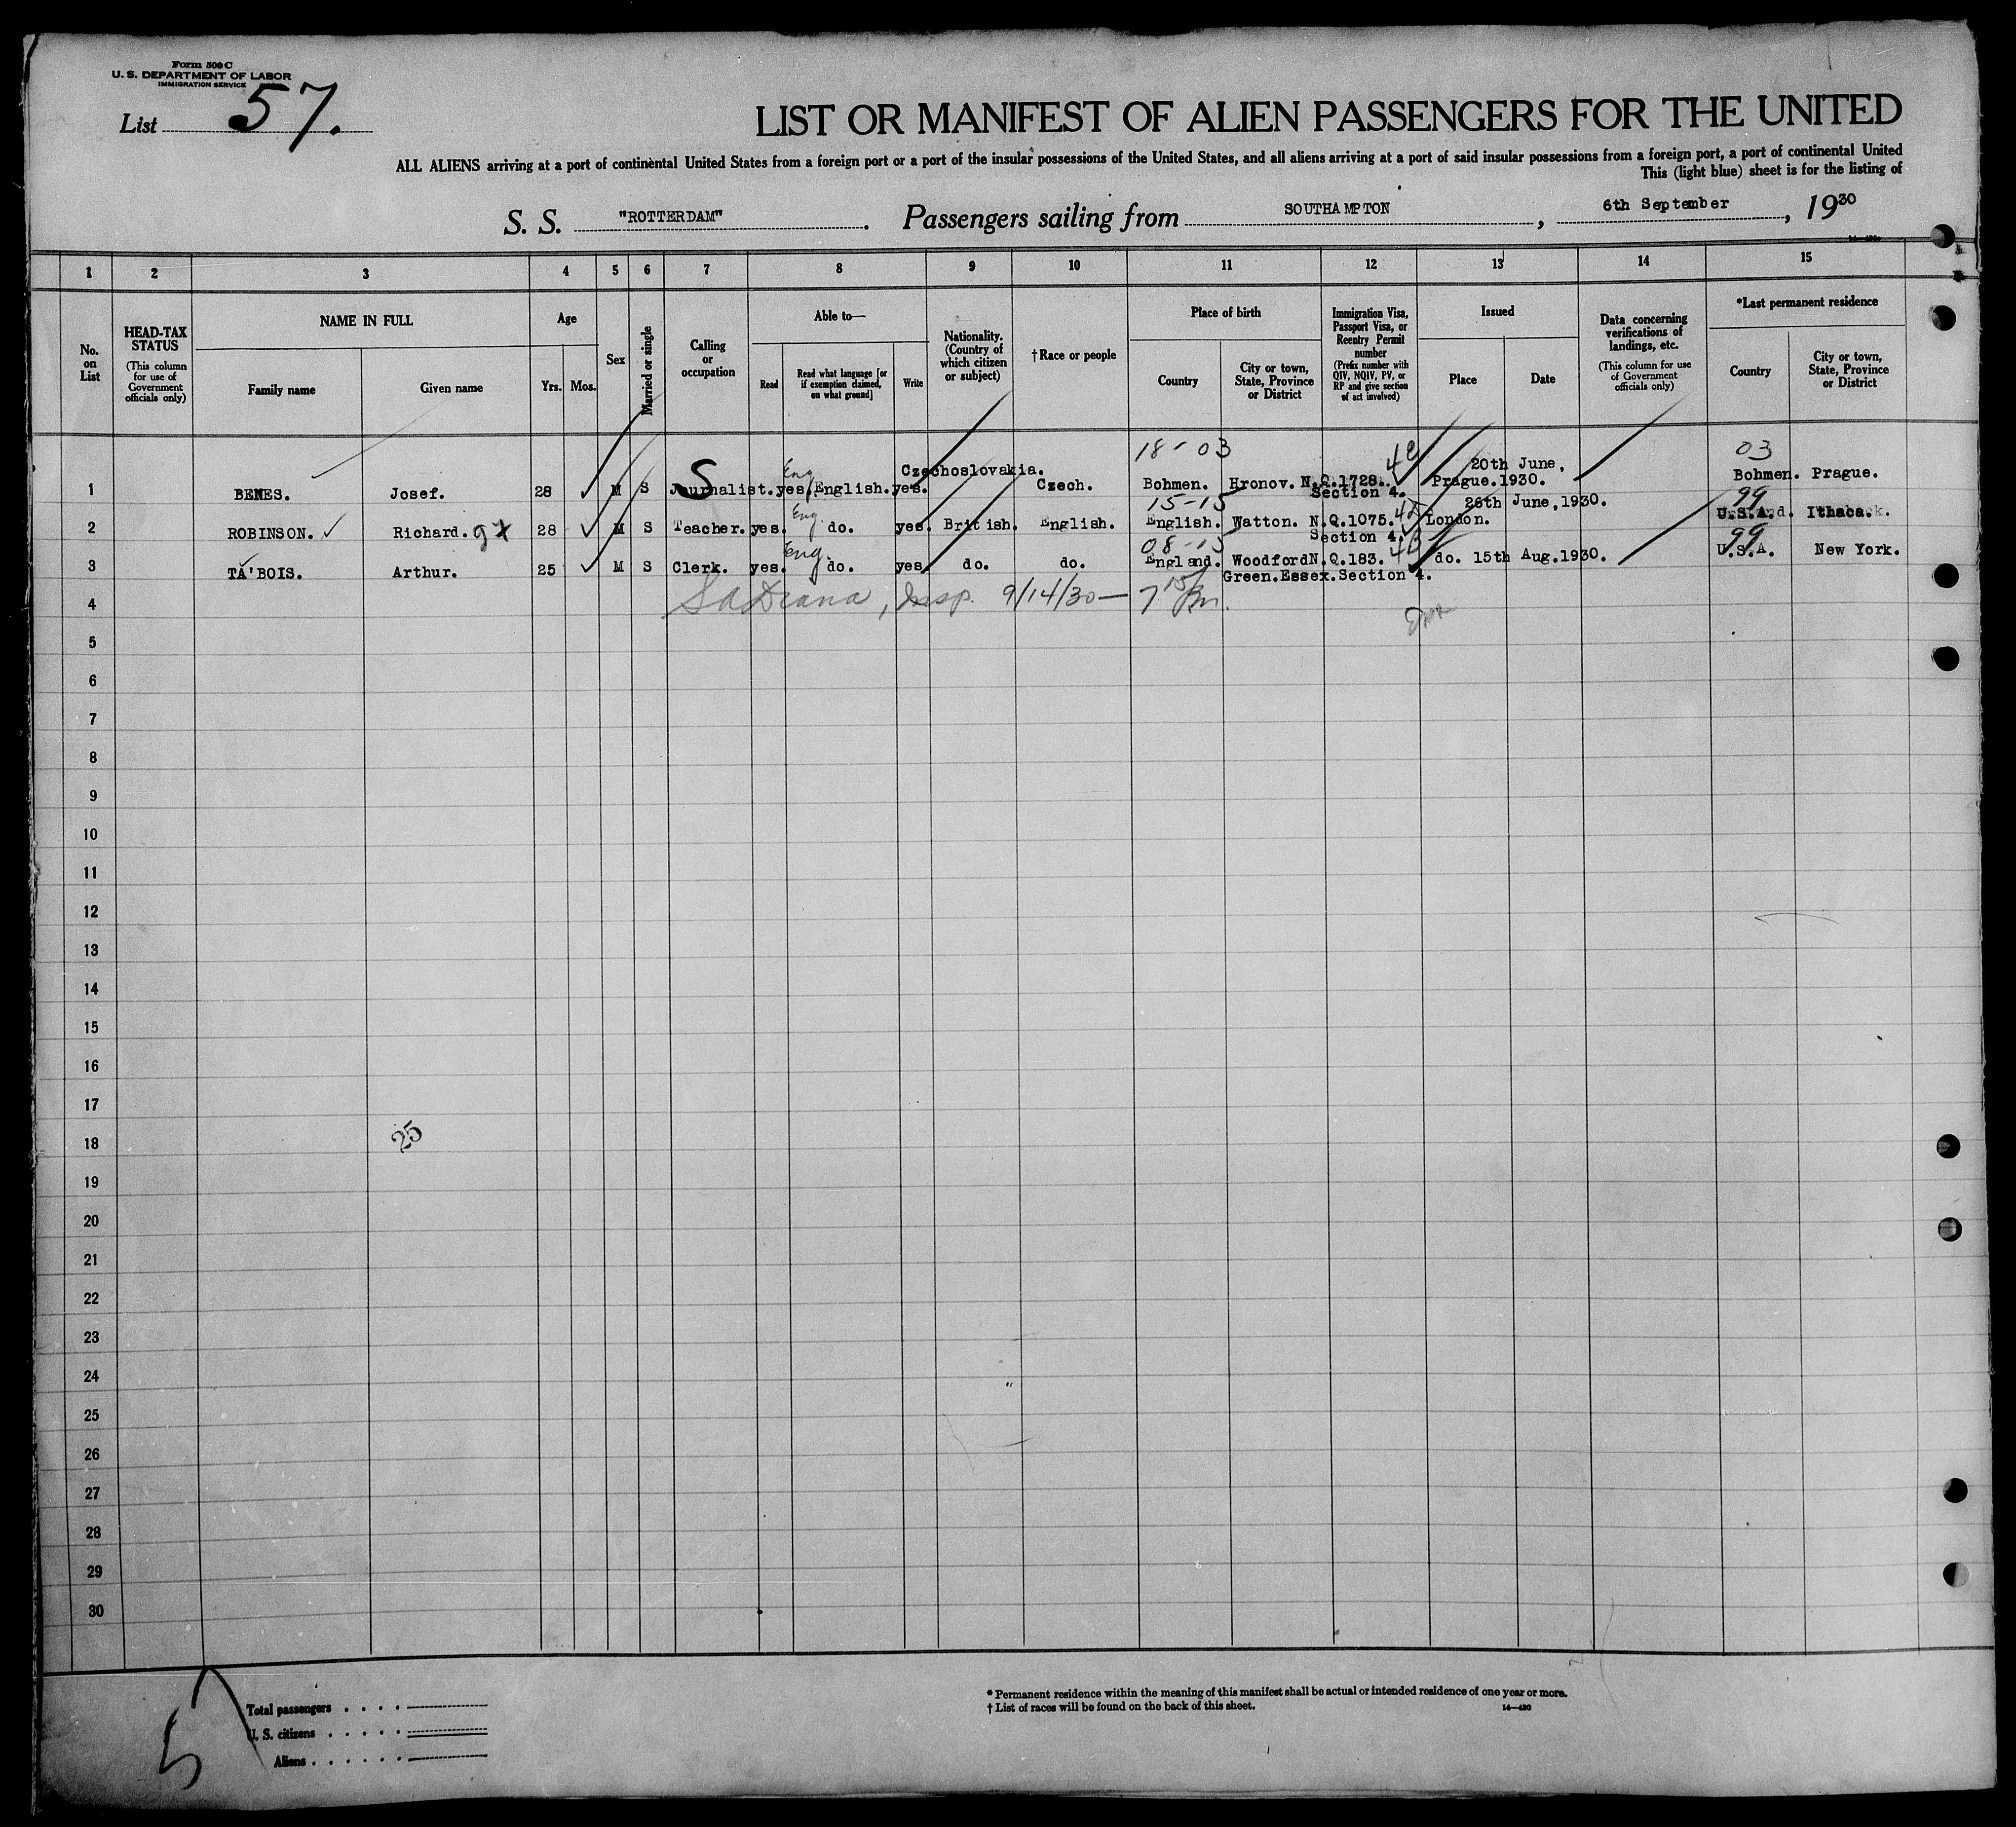 Form 500 C
U. S. DEPARTMENT OF LABOR
IMMIGRATION SERVICE
List 57.
LIST OR MANIFEST OF ALIEN PASSENGERS FOR THE UNITED
ALL ALIENS arriving at a port of continental United States from a foreign port or a port of the insular possessions of the United States, and all aliens arriving at a port of said insular possessions from a foreign port, a port of continental United
This (light blue) sheet is for the listing of
S. S. "ROTTERDAM". Passengers sailing from SOUTHAMPTON, 6th September, 1930
1 2 3 4 5 6 7 8 9 10 11 12 13 14 15
No. on List
HEAD-TAX STATUS
(This column for use of Government officials only)
NAME IN FULL
Family name
Given name
Age
Yrs.
Mos.
Sex
Married or single
Calling or occupation
Able to—
Read
Read what language [or if exemption claimed, on what ground]
Write
Nationality. (Country of which citizen or subject)
†Race or people
Place of birth
Country
City or town, State, Province or District
Immigration Visa, Passport Visa, or Reentry Permit number
(Prefix number with QIV, NQIV, PV, or RP and give section of act involved)
Issued
Place
Date
Data concerning verifications of landings, etc.
(This column for use of Government officials only)
*Last permanent residence
Country
City or town, State, Province or District
18-03 4C 03
S Eng Czechoslovakia. 20th June,
1 BENES. Josef. 28 M S Journalist. yes. English. yes. Czech. Bohmen. Hronov. N.Q.1728. Prague. 1930. Bohmen. Prague.
15-15 Section 4. 26th June, 1930. 99
2 ROBINSON. Richard. 28 M S Teacher. yes. Eng. do. yes. British. English. English. Watton. N.Q.1075. London. U.S.A. Ithaca.
08-15 Section 4. 4B 99
3 TA'BOIS. Arthur. 25 M S Clerk. yes. Eng. do. yes do. do. England. Woodford N.Q.183. do. 15th Aug. 1930. U.S.A. New York.
Green. Essex. Section 4.
4 Insp. 9/14/30—
5
6
7
8
9
10
11
12
13
14
15
16
17
18 25
19
20
21
22
23
24
25
26
27
28
29
30
5
Total passengers
U. S. citizens
Aliens
* Permanent residence within the meaning of this manifest shall be actual or intended residence of one year or more.
† List of races will be found on the back of this sheet.
14—480